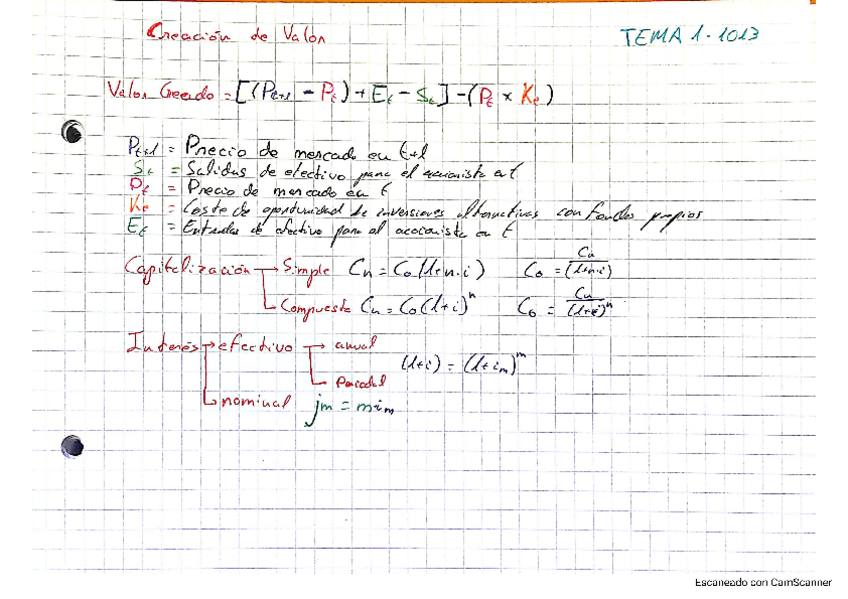 Creación de Valor
TEMA 1 - 1013
Valor Creado = [(Pt+1 - Pt) + Et - St] - (Pt × Ke)
Pt+1 = Precio de mercado en t+1
St = Salidas de efectivo para el accionista en t
Pt = Precio de mercado en t
Ke = Coste de oportunidad de inversiones alternativas con fondos propios
Et = Entradas de efectivo para el accionista en t
Capitalización → Simple Cn = Co(1+n·i) Co = Cn/(1+n·i)
→ Compuesta Cn = Co(1+i)^n Co = Cn/(1+i)^n
Interés → efectivo → anual
(1+i) = (1+im)^m
→ Periodal
→ nominal jm = m·im
Escaneado con CamScanner